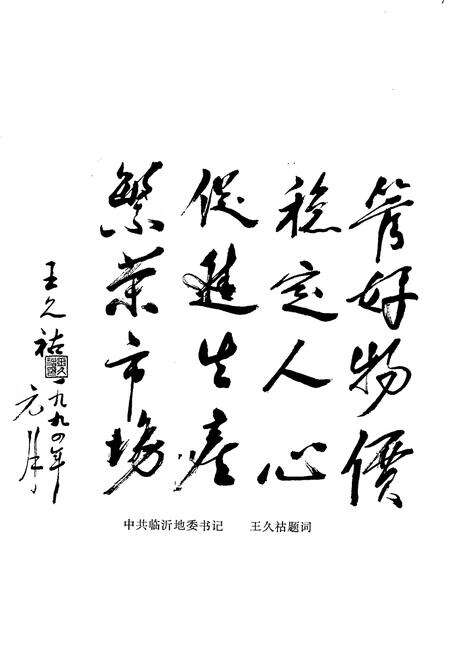 管好物價
穩定人心
促進生產
繁荣市場
王久祜
一九九四年
元月
中共临沂地委书记 王久祜题词